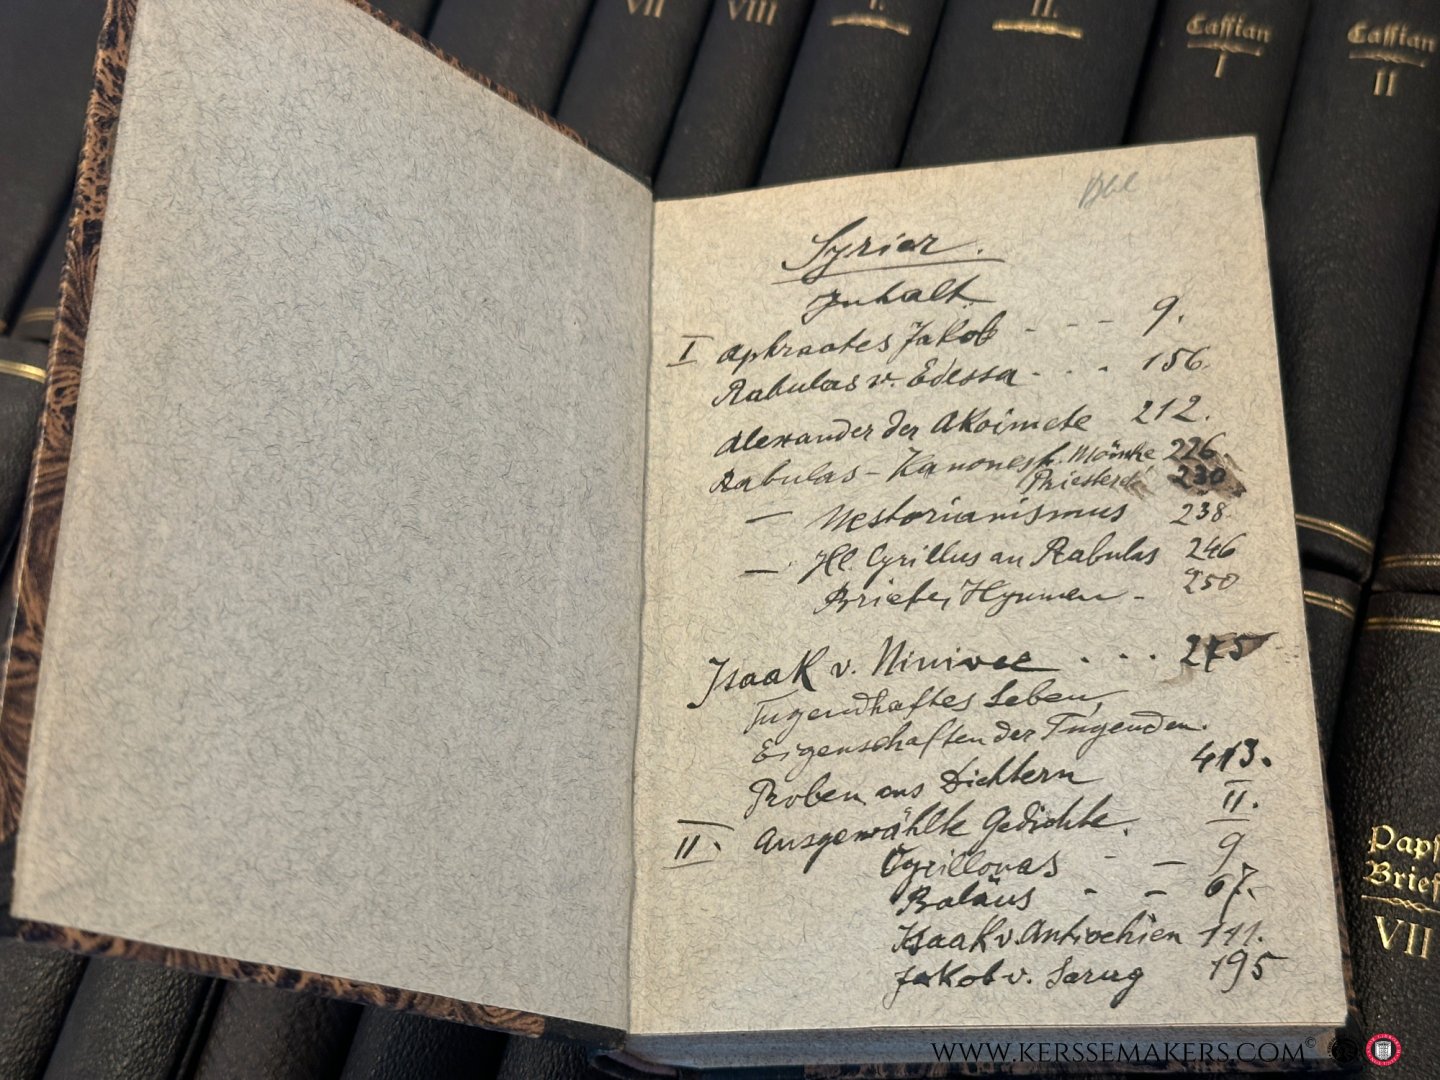 VII
VIII
I.
II.
Cassian
I
Cassian
II
Syrier.
Inhalt
I Aphraates Jakob - - - 9.
Rabulas v. Edessa - . . 156.
Alexander der Akoimete 212.
Rabulas - Kanones f. Mönche 226.
Priester 230
— Nestorianismus 238.
— Hl. Cyrillus an Rabulas 246
Briefe, Hymnen - 250
Isaak v. Ninivee . . . 275
Tugendhaftes Leben,
Eigenschaften der Tugenden.
Proben aus Dichtern 413.
II.
II. Ausgewählte Gedichte.
Cyrillonas - — 9
Baläus - — 67.
Isaak v. Antiochien 141.
Jakob v. Sarug 195
Paps
Brief
VII
WWW.KERSSEMAKERS.COM©